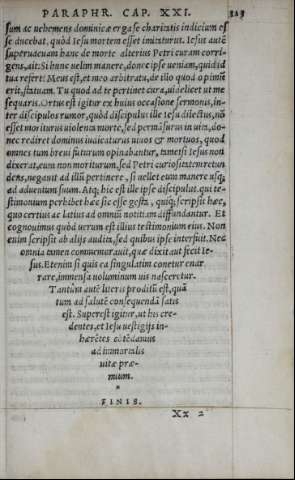 PARAPHR. CAP. XXI. 323
sum ac uehemens dominicæ erga se charitatis indicium es
se ducebat, quòd Iesu mortem esset imiturus. Iesus autẽ
superuacuam hanc de morte alterius Petri curam corri-
gens, ait: Si hunc uelim manere, donec ipse ueniam, quid id
tua refert: Meus est, et meo arbitratu, de illo quod optimũ
erit, statuam. Tu quod ad te pertinet cura, uidelicet ut me
sequaris. Ortus est igitur ex huius occasione sermonis, in-
ter discipulos rumor, quòd discipulus ille Iesu dilectus, nõ
esset moriturus uiolenta morte, sed permãsurus in uita, do-
nec rediret dominus iudicaturus uiuos & mortuos, quod
omnes tum breui futurum opinabantur, tametsi Iesus non
dixerat, eum non moriturum, sed Petri curiositatem retun
dens, negauit ad illũ pertinere, si uellet eum manere usq;
ad aduentum suum. Atq; hic est ille ipse discipulus, qui te-
stimonium perhibet hæc sic esse gesta, quiq; scripsit hæc,
quo certius ac latius ad omniũ notitiam diffundantur. Et
cognouimus quòd uerum est illius testimonium eius. Non
enim scripsit ab alijs audita, sed quibus ipse interfuit. Nec
omnia tamen commemorauit, quæ dixit aut fecit Ie-
sus. Etenim si quis ea singulatim conetur enar
rare, immensa uoluminum uis nasceretur.
Tantũm autẽ literis proditũ est, quã
tum ad salutẽ consequendã satis
est. Superest igitur, ut his cre-
dentes, et Iesu uestigijs in-
hærẽtes cõtẽdamus
ad immortalis
uitæ præ-
mium.
*
FINIS.
Xx 2